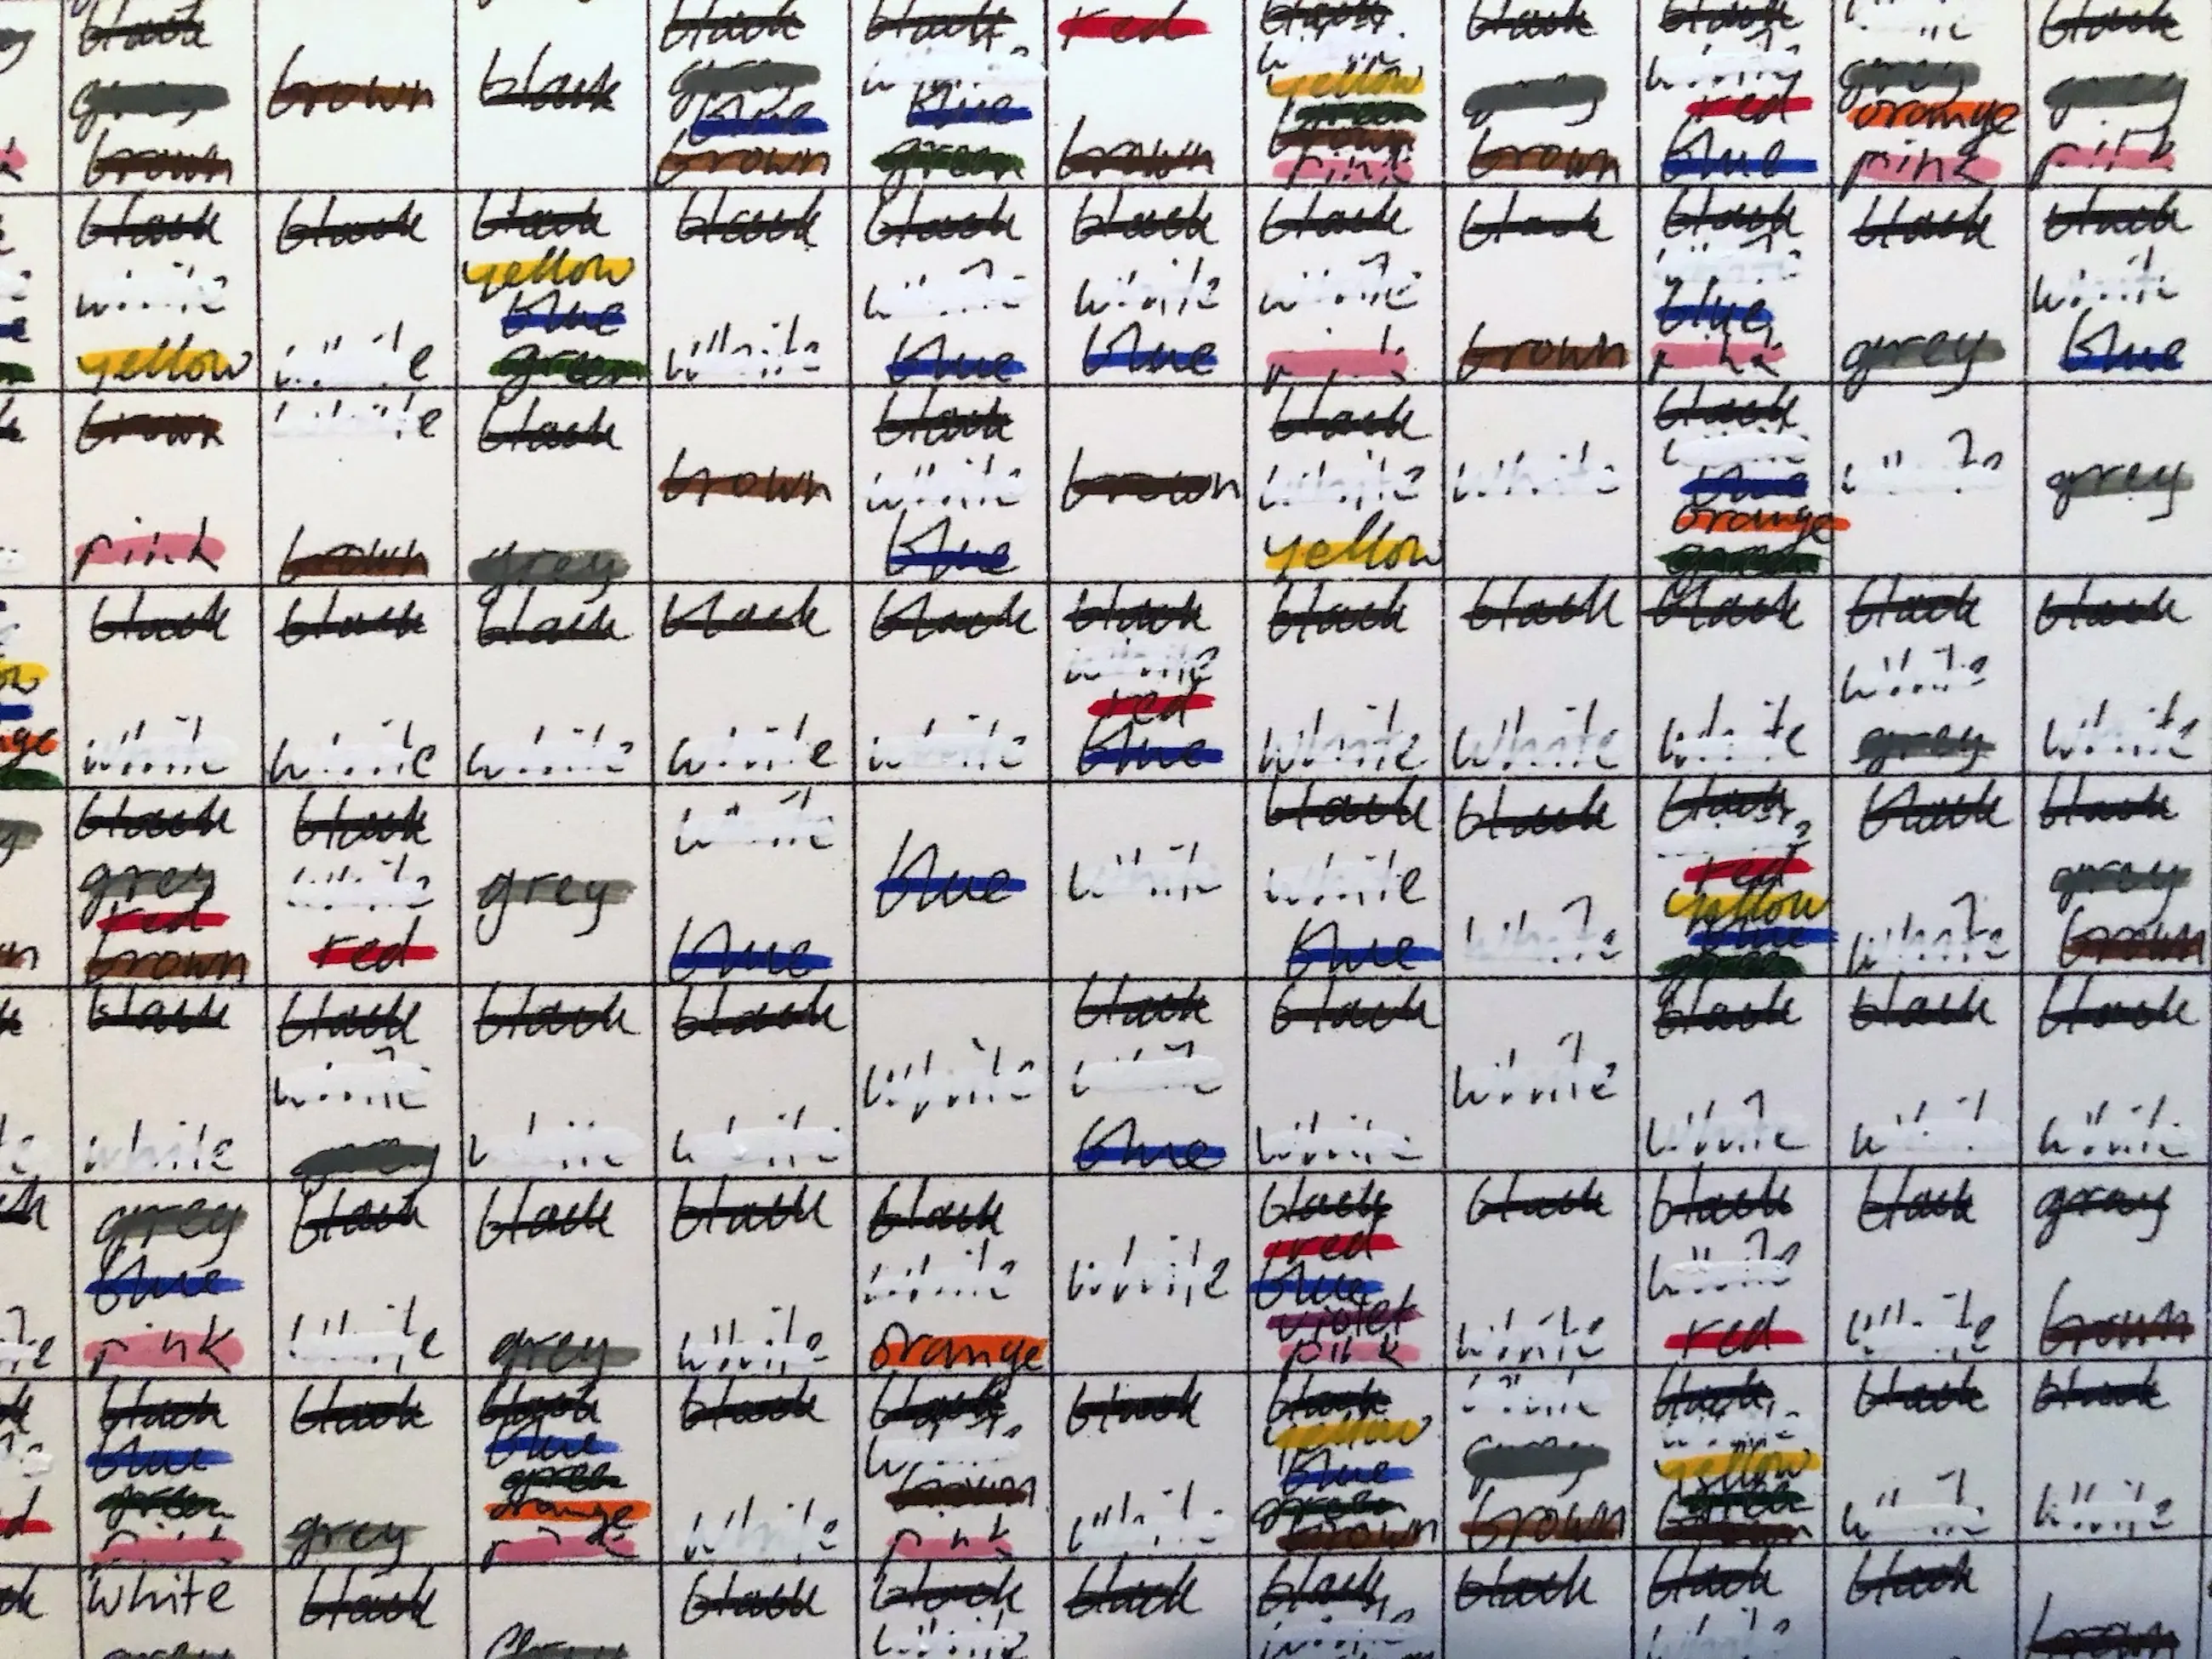 black
grey
brown
brown
black
black
grey
blue
brown
black
white
blue
green
red
brown
black
white
yellow
green
brown
pink
black
grey
brown
black
white
red
blue
grey
orange
pink
black
grey
pink
black
white
yellow
black
white
black
yellow
blue
green
black
white
black
white
blue
black
white
blue
black
white
pink
black
brown
black
white
blue
pink
black
grey
black
white
blue
brown
pink
white
brown
black
grey
brown
black
white
blue
brown
black
white
yellow
white
black
white
blue
orange
green
white
grey
black
white
black
white
black
white
black
white
black
white
black
white
red
blue
black
white
black
white
black
white
black
white
grey
black
white
black
grey
red
brown
black
white
red
grey
white
blue
blue
white
black
white
blue
black
white
black
white
red
yellow
blue
green
black
white
black
grey
brown
black
white
black
white
grey
black
white
black
white
white
black
white
blue
black
white
white
black
white
black
white
black
white
grey
blue
pink
black
white
black
grey
black
white
black
white
orange
white
black
red
blue
violet
pink
black
white
black
white
red
black
white
gray
brown
black
blue
green
pink
black
grey
black
blue
green
orange
pink
black
white
black
white
brown
pink
black
white
black
yellow
blue
green
brown
white
grey
brown
black
white
yellow
green
brown
black
white
black
white
white
grey
black
black
black
white
black
black
white
black
black
white
black
brown